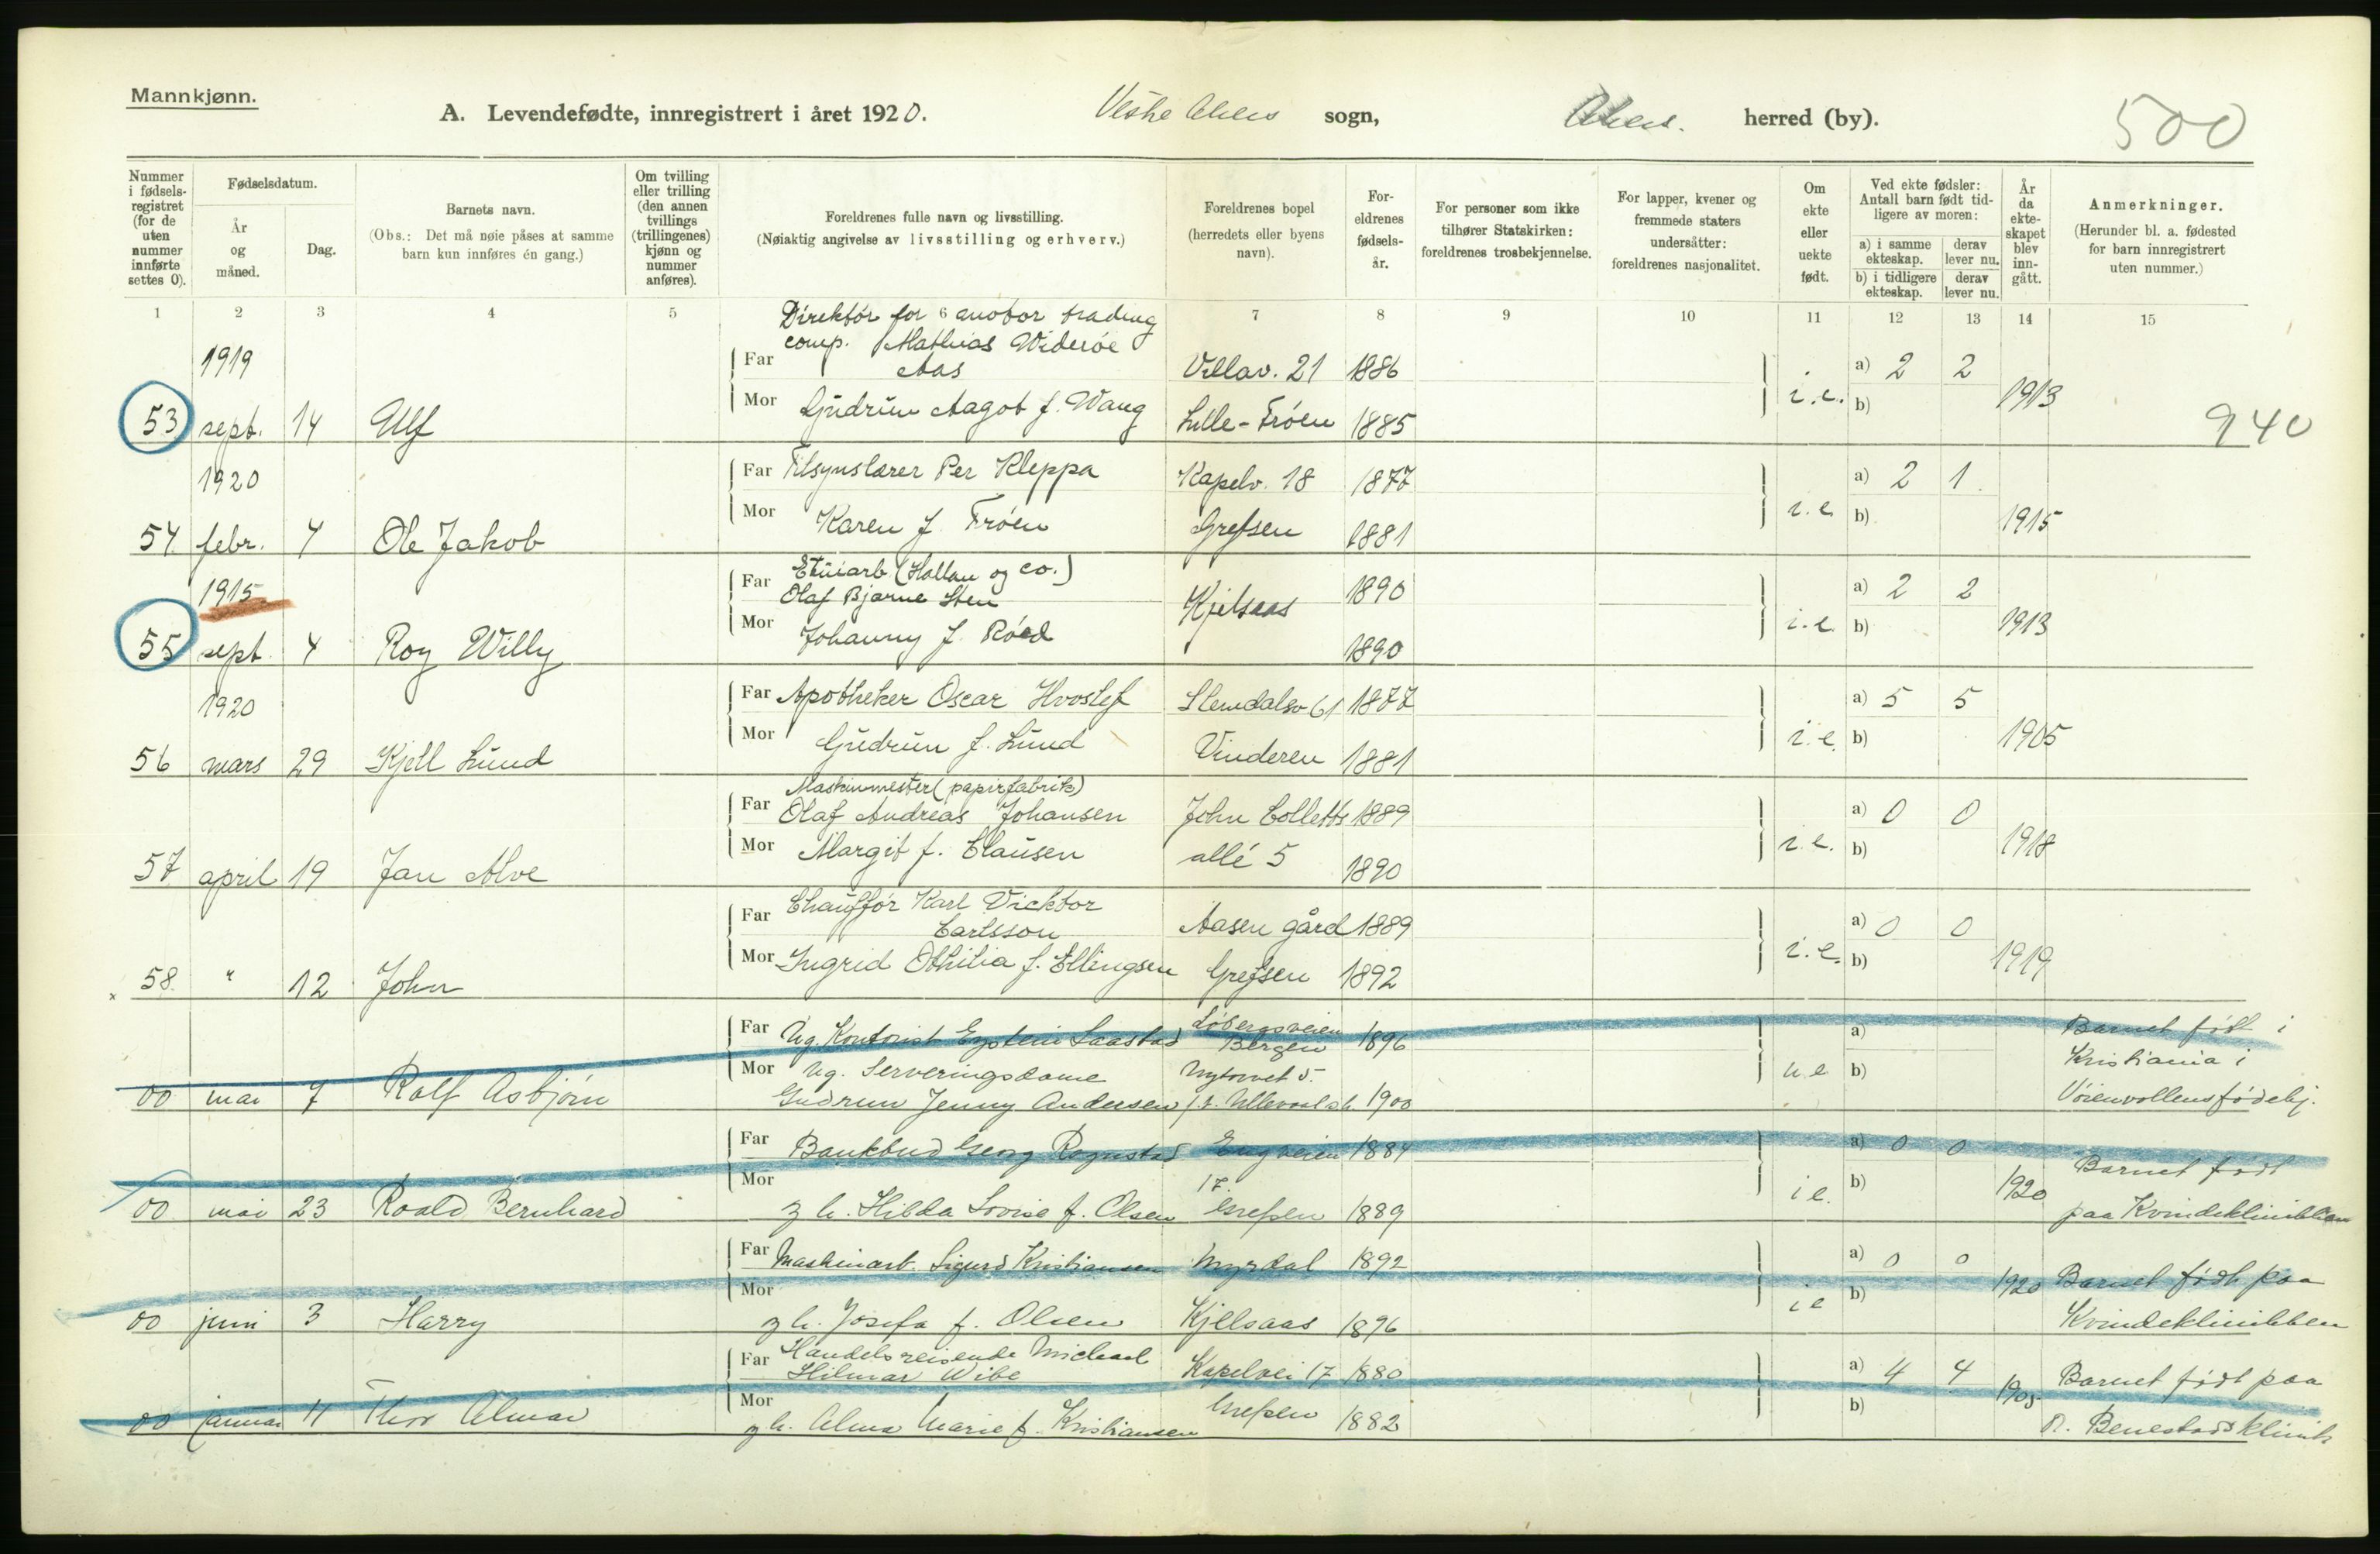 Mannkjønn.
A. Levendefødte, innregistrert i året 1920. Vestre Akers sogn, Akers. herred (by). 500
Nummer i fødsels-registret (for de uten nummer innførte settes 0).
Fødselsdatum.
År og måned.
Dag.
Barnets navn.
(Obs.: Det må nøie påses at samme barn kun innføres én gang.)
Om tvilling eller trilling (den annen tvillings (trillingenes) kjønn og nummer anføres).
Foreldrenes fulle navn og livsstilling.
(Nøiaktig angivelse av livsstilling og erhverv.)
Foreldrenes bopel (herredets eller byens navn).
For-eldrenes fødsels-år.
For personer som ikke tilhører Statskirken: foreldrenes trosbekjennelse.
For lapper, kvener og fremmede staters undersåtter: foreldrenes nasjonalitet.
Om ekte eller uekte født.
Ved ekte fødsler: Antall barn født tid-ligere av moren:
a) i samme ekteskap.
derav lever nu.
b) i tidligere ekteskap.
derav lever nu.
År da ekte-skapet blev inn-gått.
Anmerkninger.
(Herunder bl. a. fødested for barn innregistrert uten nummer.)
1 2 3 4 5 6 7 8 9 10 11 12 13 14 15
Direktør for trading
comp. Mathias Widerøe
1919 Far Aas Villav. 21 1886 a) 2 2
53 sept. 14 Ulf Mor Gudrun Aagot f. Wang Lille-Frøen 1885 i.e. b) 1913
940
1920 Far Tilsynslærer Per Kleppa Kapelv. 18 1877 a) 2 1
54 febr. 4 Ole Jakob Mor Karen f. Frøen Grefsen 1881 i.e. b) 1915
Etuiarb. (Hallan og co.)
1915 Far Olaf Bjarne Sten Kjelsaas 1890 a) 2 2
55 sept. 4 Roy Willy Mor Johanny f. Røed 1890 i.e. b) 1913
1920 Far Apotheker Oscar Hvoslef Slemdalsv 61 1877 a) 5 5
56 mars 29 Kjell Lund Mor Gudrun f. Lund Vinderen 1881 i.e. b) 1905
Maskinmester (papirfabrik)
Far Olaf Andreas Johansen John Colletts 1889 a) 0 0
57 april 19 Jan Alve Mor Margit f. Clausen allé 5 1890 i.e. b) 1918
Far Chauffør Karl Vicktor
Carlsson Aasen gård 1889 a) 0 0
58. " 12 John Mor Ingrid Othilia f. Ellingsen Grefsen 1892 i.e. b) 1919
Far Ug. Kontorist Eystein Saastad Bergen 1896 a) Barnet født i
Mor Ug. Serveringsdame Nytorvet 5. u e b) Kristiania i
00 mai 7 Rolf Asbjørn Gudrun Jenny Andersen 1900 Vøienvollens fødehj.
Far Bankbud Georg Rognstad Engveien 1884 a) 0 0 Barnet født
Mor 17. b) 1920
00 mai 23 Roald Bernhard g h. Hilda Lovise f. Olsen Grefsen 1889 i e. paa Kvindeklinikken
Far Maskinarb. Sigurd Kristiansen Myrdal 1892 a) 0 0 1920 Barnet født paa
Mor b)
00 juni 3 Harry g h. Josefa f. Olsen Kjelsaas 1896 i e Kvindeklinikken
Far Handelsreisende Michael
Hilmar Wibe Kapelvei 17 1880 a) 4 4 1905 Barnet født paa
Mor b)
00 januar 11 Thor Almar g h. Alma Marie f. Kristiansen Grefsen 1882 Benestads klinik